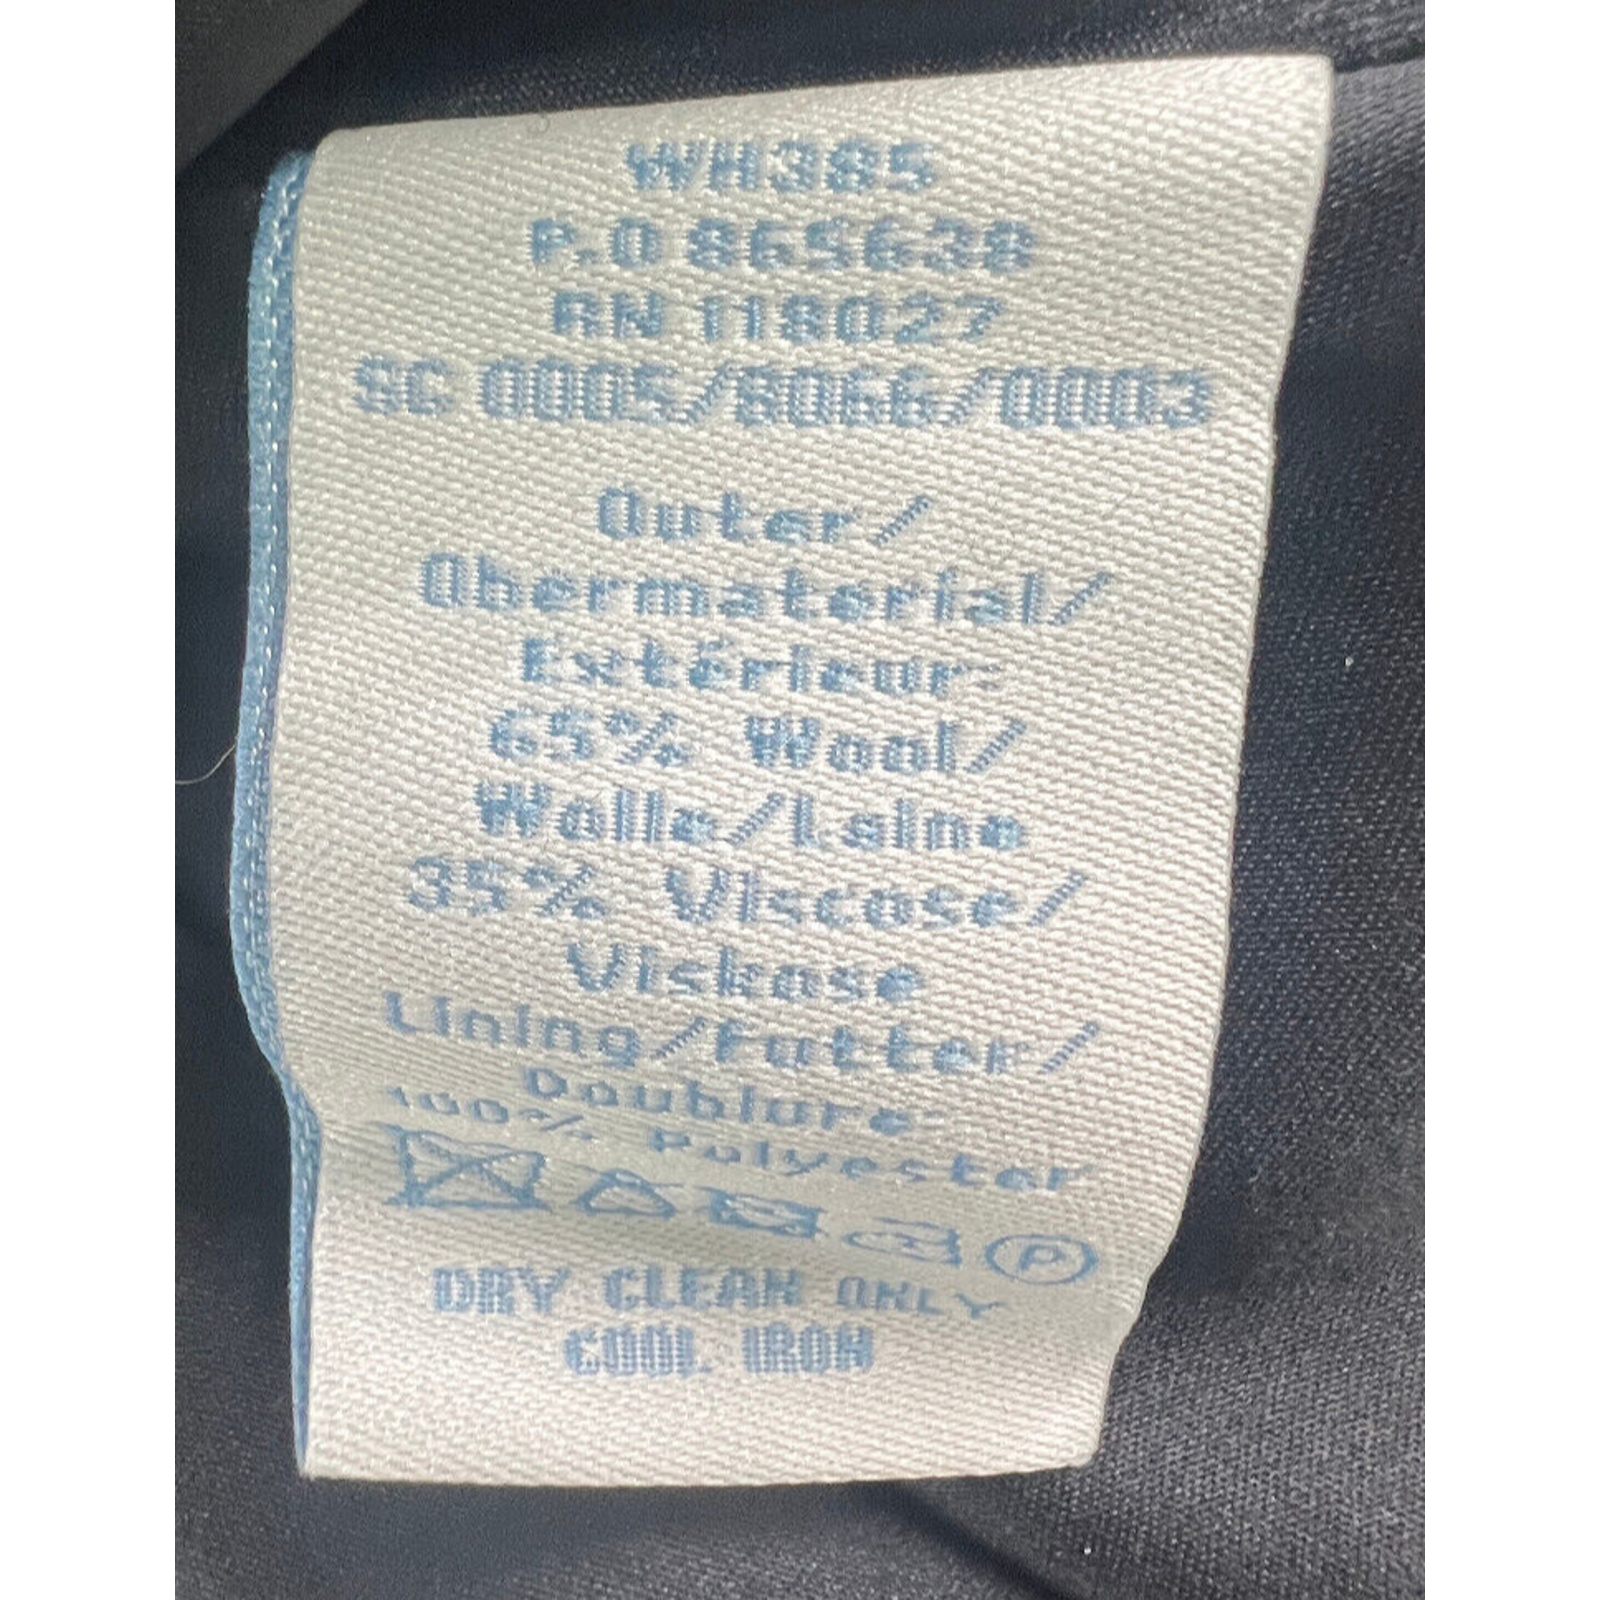 WH385
P.O 865638
RN 118027
SC 0005/8066/0003
Outer/
Obermaterial/
Extérieur:
65% Wool/
Wolle/Laine
35% Viscose/
Viskose
Lining/Futter/
Doublure
100% Polyester
P
DRY CLEAN ONLY
COOL IRON